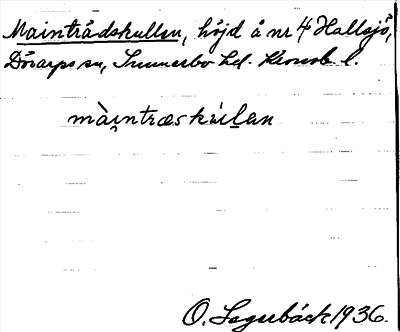 Mainträdskullen, höjd å nr 4 Hallsjö,
Dörarps sn, Sunnerbo hd. Kronob. l.
mài̯ntræskúlan
O. Lagerbäck 1936.